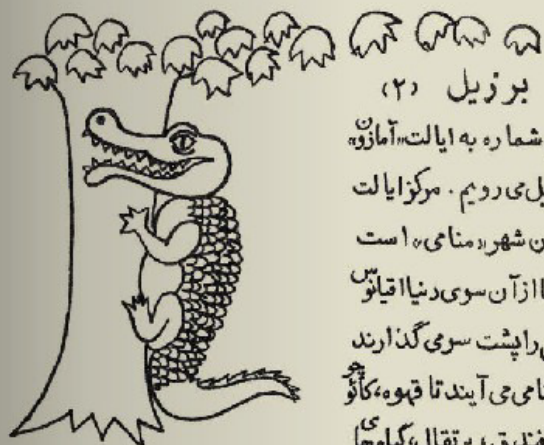 برزیل (۲)
شماره به ایالت «آمازون»
یل می رویم . مرکز ایالت
ن شهر «منامی» است
ا از آن سوی دنیا اقیانوس
را پشت سر می گذارند
نامی می آیند تا قهوه، کائوچو
فندق، پرتقال، گیاههای